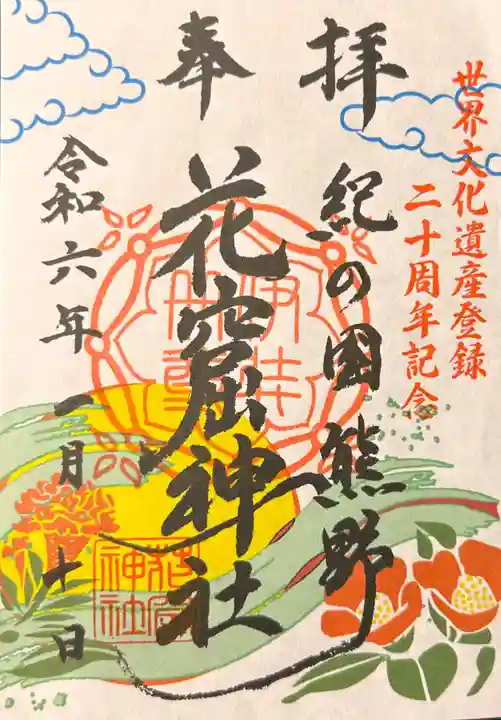 世界文化遺産登録
二十周年記念
奉拝
紀の国熊野
花窟神社
令和六年一月十日
花窟
神社